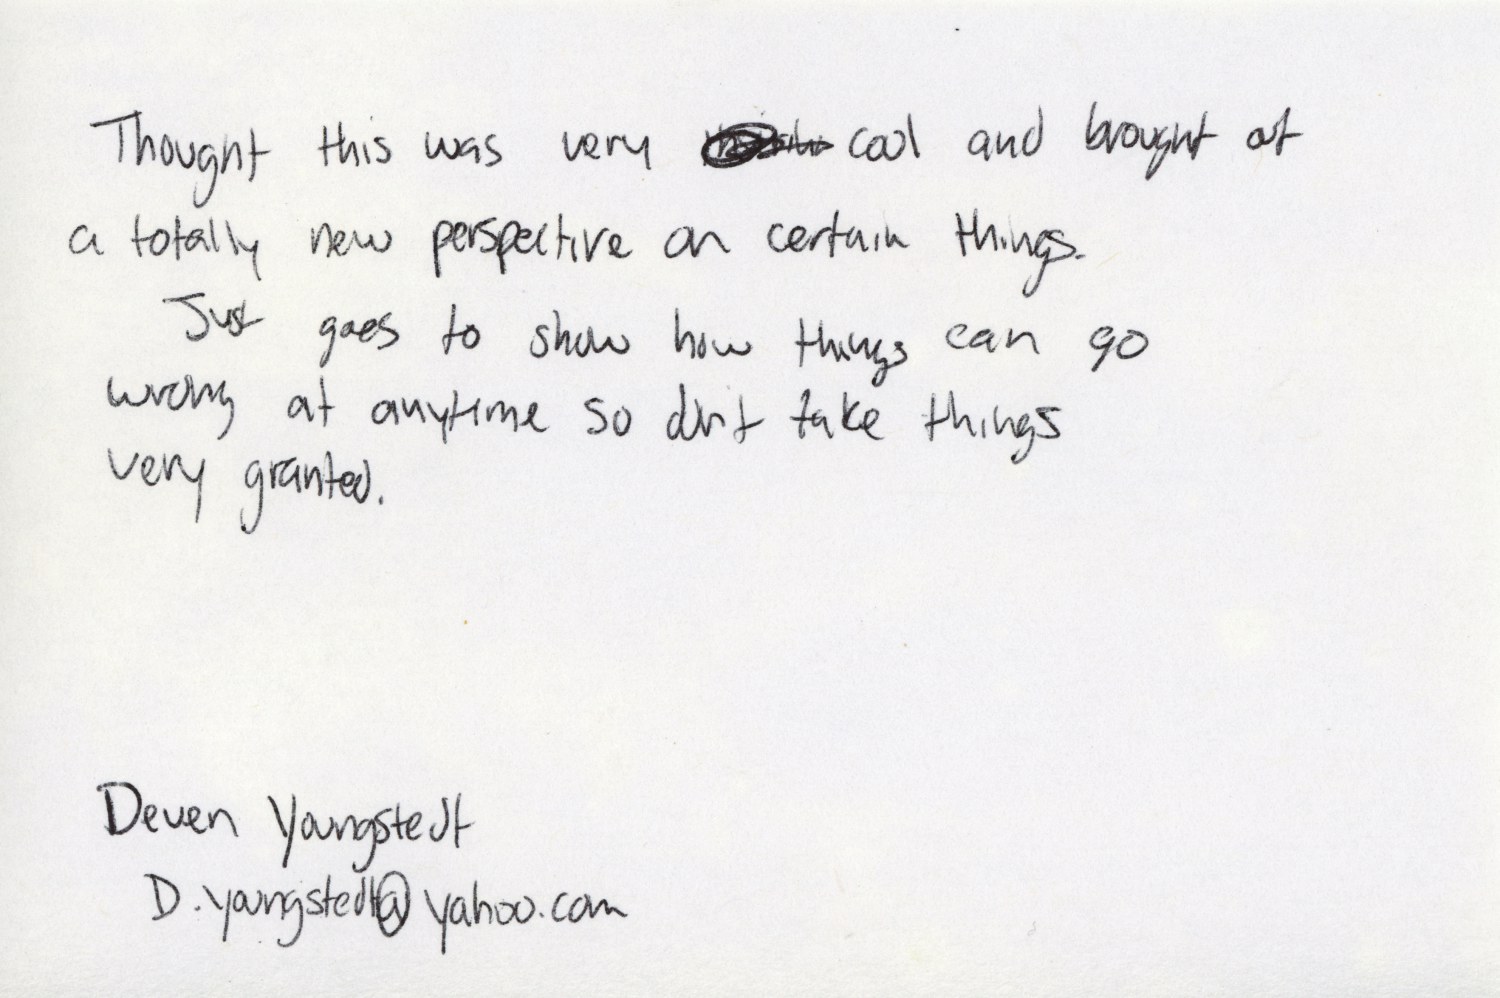 Thought this was very cool and brought out
a totally new perspective on certain things.
Just goes to show how things can go
wrong at anytime so don't take things
very granted.
Deven Youngstedt
D.youngstedt@yahoo.com